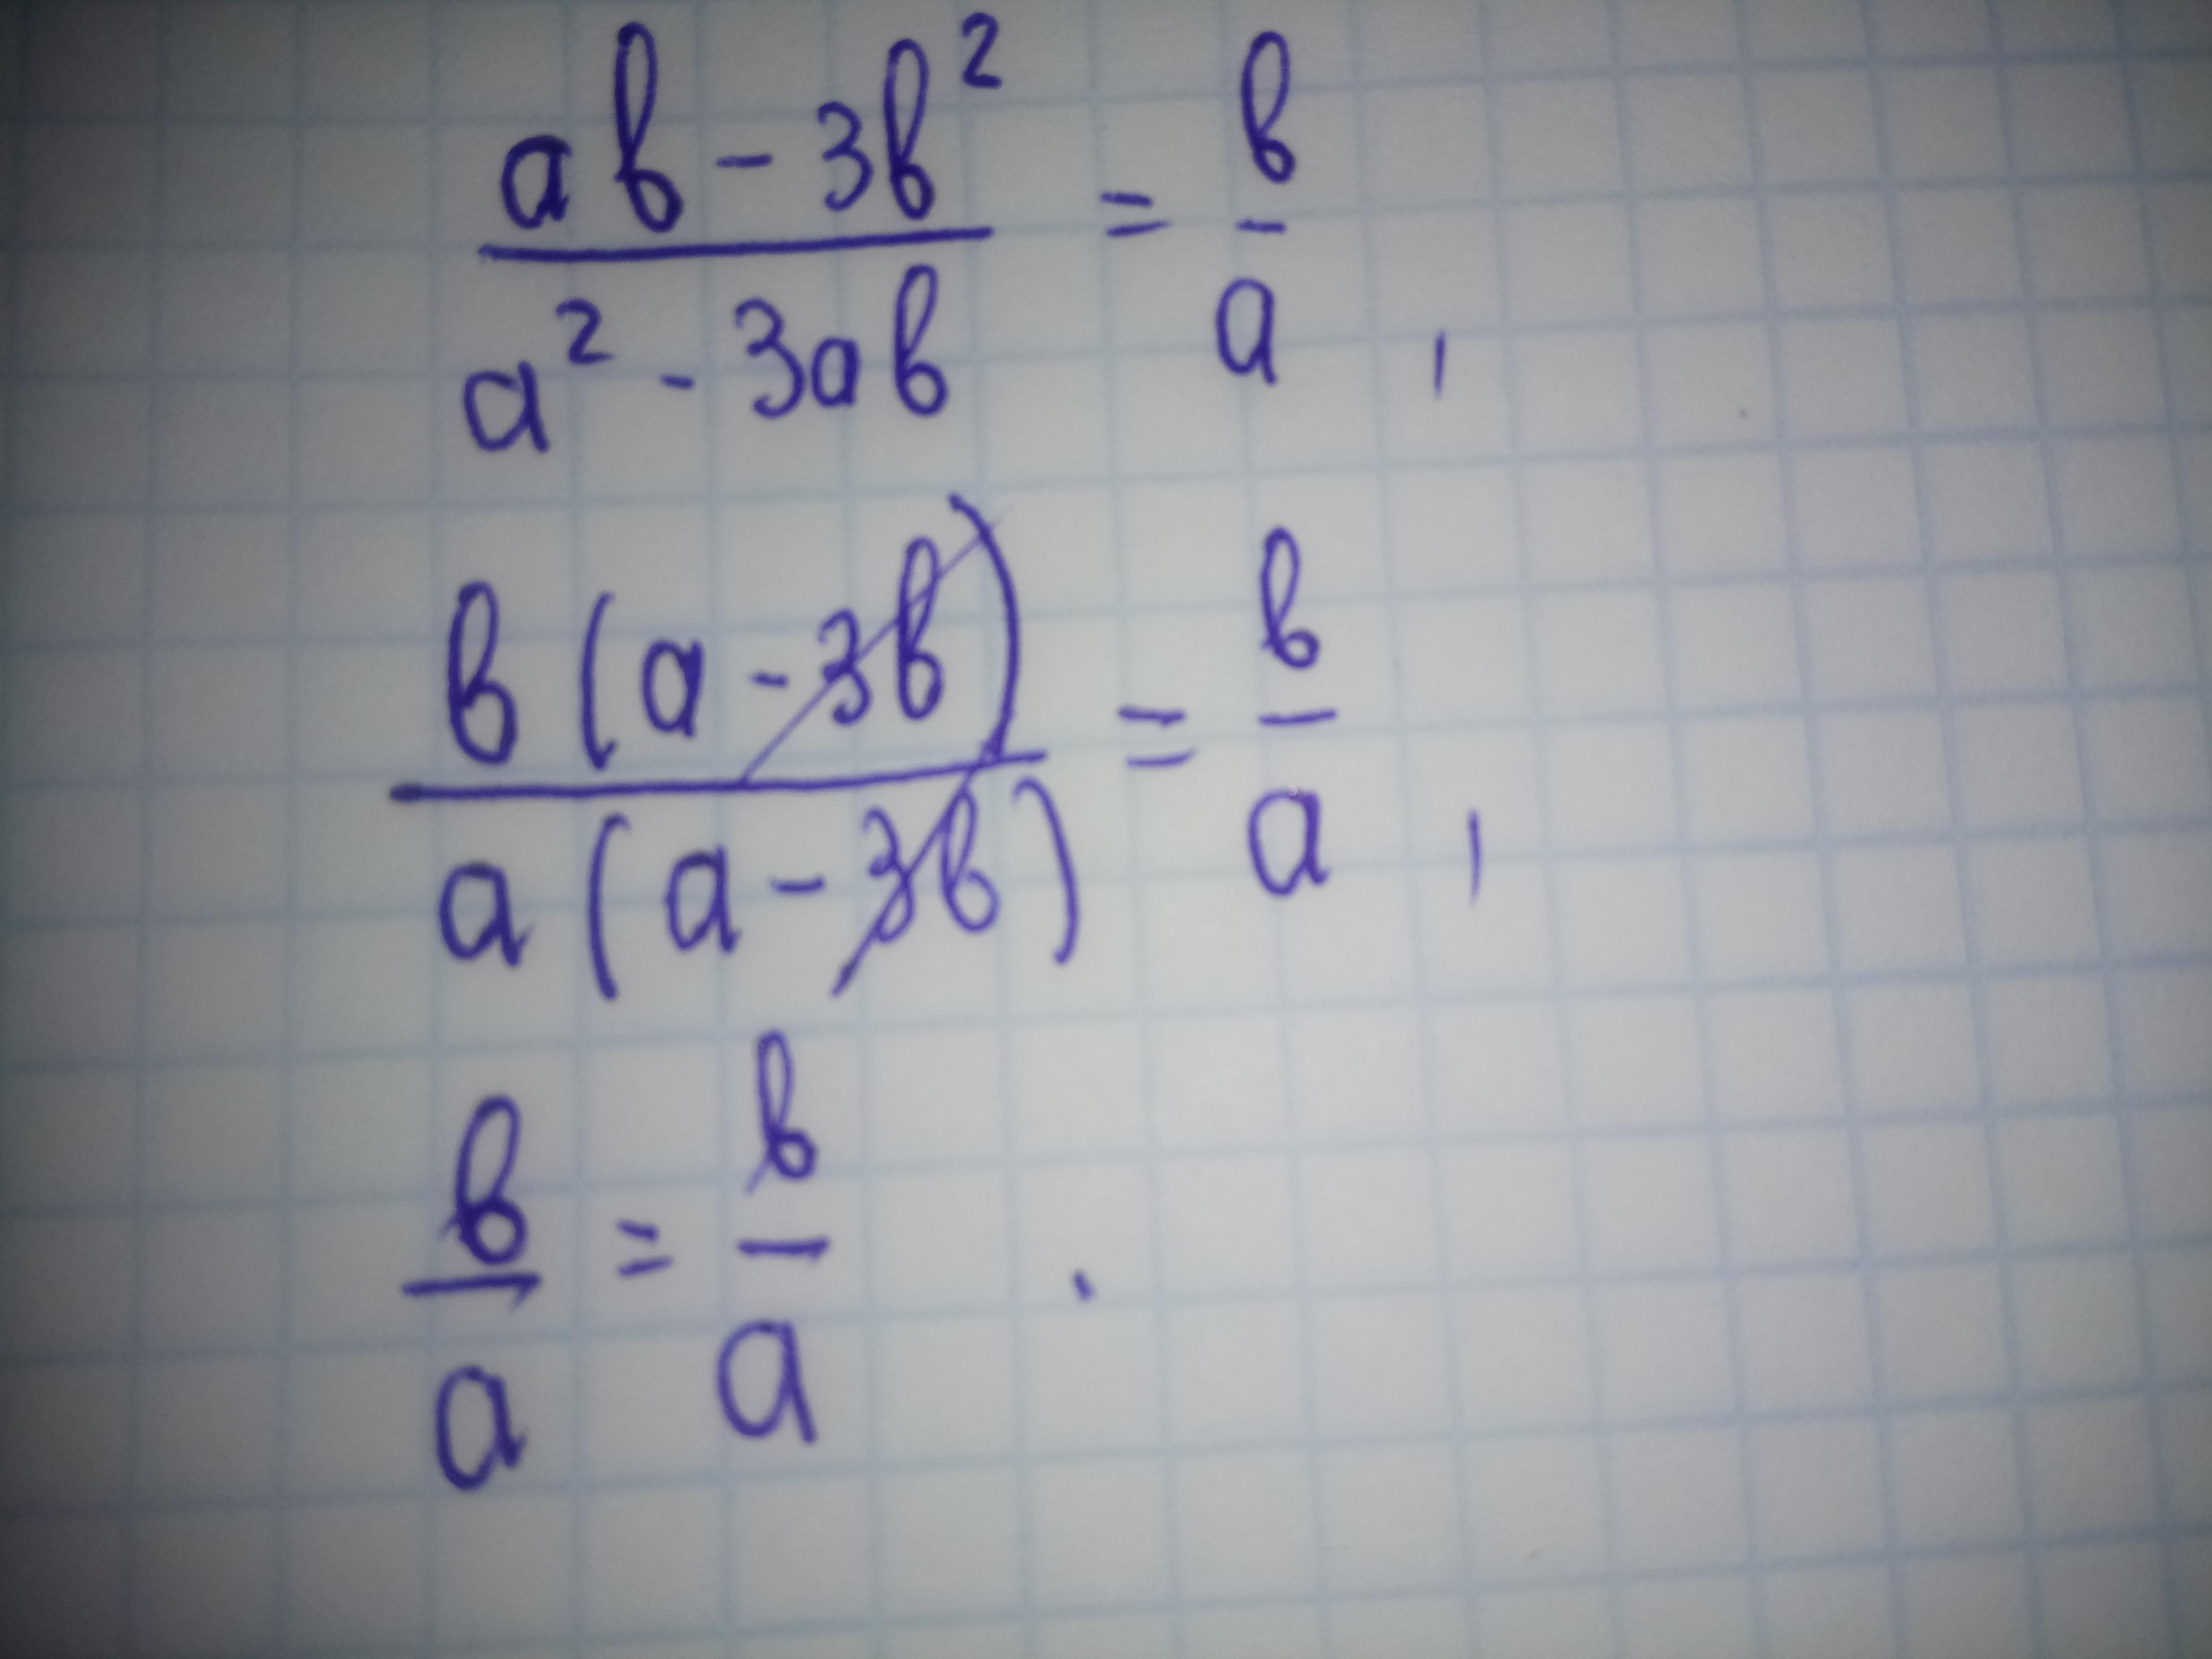 ab - 3b² / a² - 3ab = b / a ,
b (a - 3b) / a (a - 3b) = b / a ,
b / a = b / a .